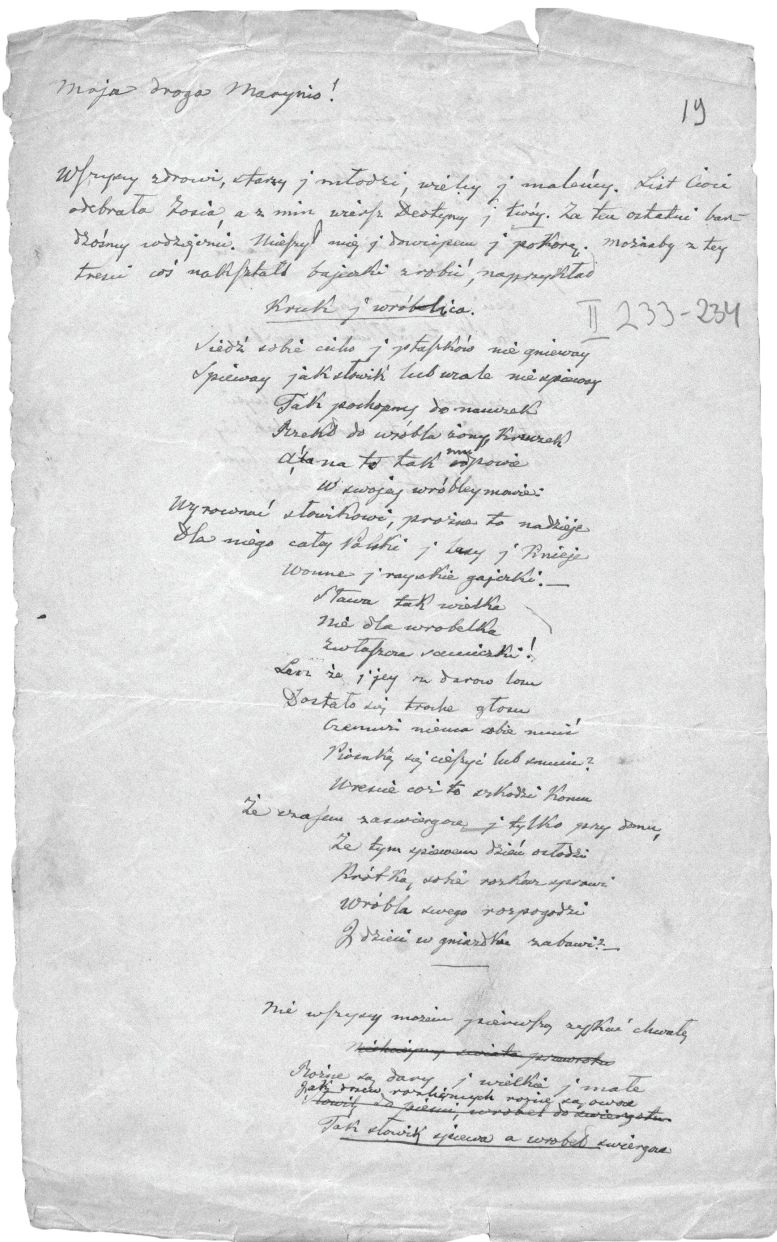 Moja droga Marynio!
19
Wszyscy zdrowi, starzy j młodzi, wielcy j maleńcy. List Cioci
odebrała Zosia, a z nim wiersz Deotymy j twóy. Za ten ostatni bar-
dzośmy wdzięczni. j dowcipem j pokorą. możnaby z tey
tresci coś nakształt bajeczki zrobić, naprzykład
Kruk j wróblica.
II 233-234
Siedź sobie cicho j ptaszków nie gnieway
Spieway jak słowik lub wcale nie spieway
Tak pochopny do nauczek
Rzekł do wróbla żony Kruczek
A ta na to tak mu odpowie
W swojey wróbley mowie:
Wyrownać słowikowi, prożne to nadzieje
Dla niego całey Polski j lasy j Knieje
Wonne j rayskie gajczki. —
Sława tak wielka
Nie dla wrobelka
Zwłaszcza samiczki!
Lecz że j jey z darow losu
Dostało się troche głosu
Czemuż niema sobie nucić
Piosnką się cieszyć lub smucić?
Wrescie coż to szkodzi Komu
Że czasem zaswiergoce j tylko przy domu,
Że tym spiewem dzień osłodzi
Krótką sobie rozkosz sprawi
Wróbla swego rozpogodzi
I dzieci w gniazdku zabawi? —
Nie wszyscy możem pierwszą zyskać chwałę
świata
Rożne są dary j wielkie j małe
Jak drzew rozlicznych rożne są owoce
Słowik do pieni, wrobel do swiergotu
Tak słowik spiewa a wrobel swiergoce